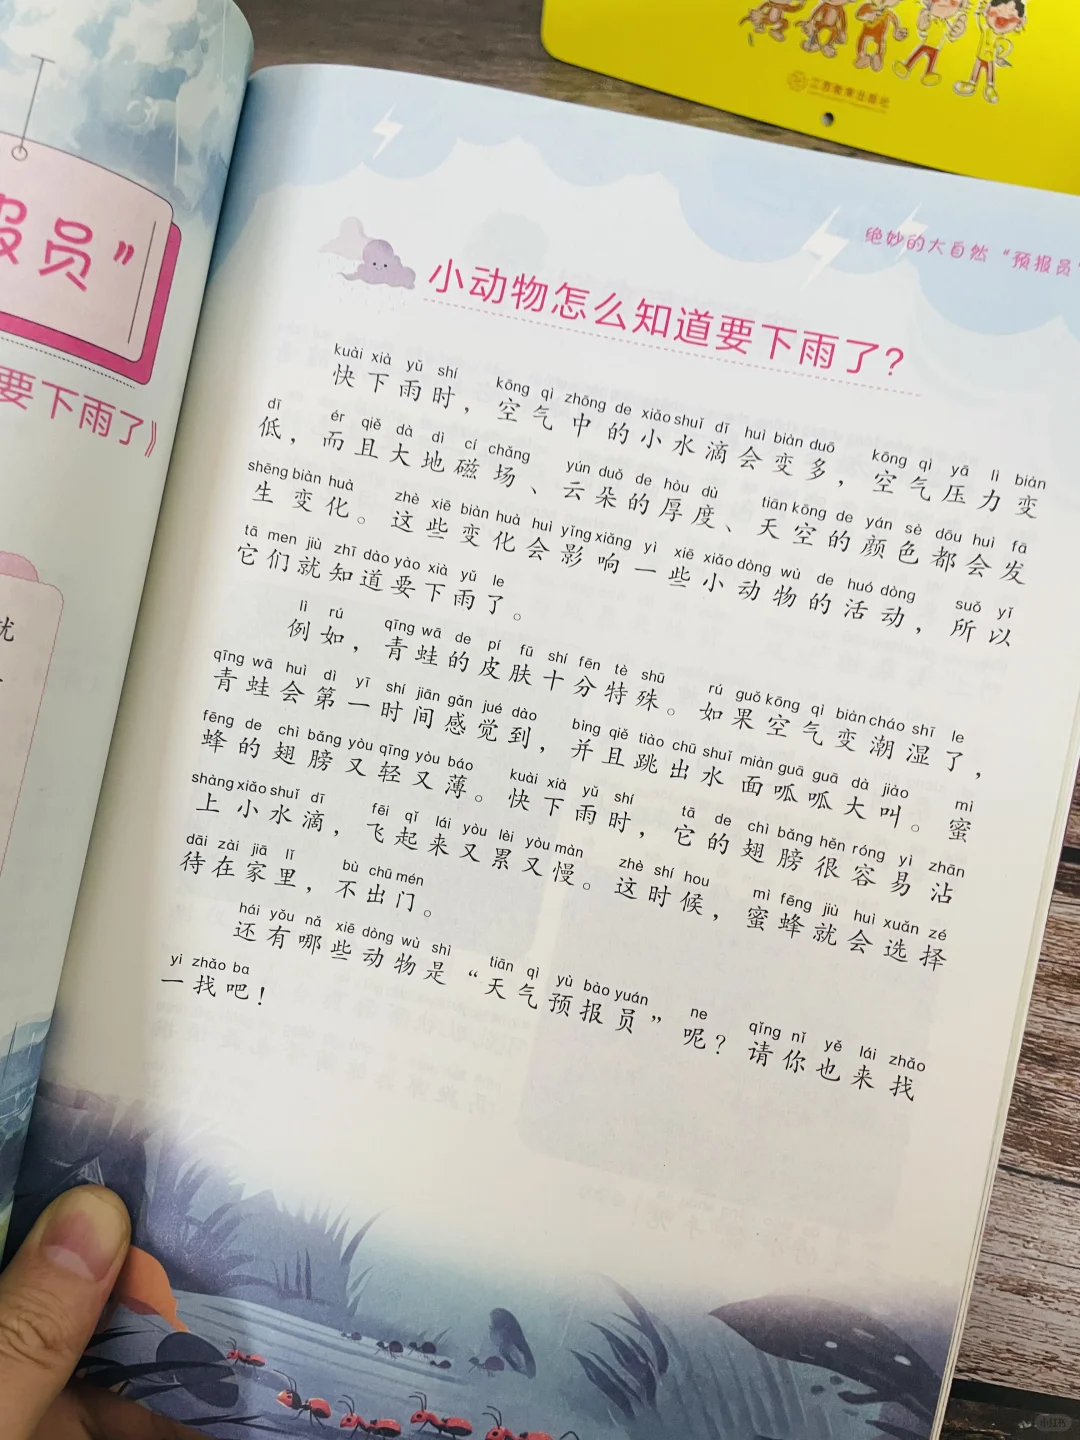 江西教育出版社
报员”
要下雨了》
绝妙的大自然“预报员”
小动物怎么知道要下雨了？
kuài xià yǔ shí kōng qì zhōng de xiǎo shuǐ dī huì biàn duō kōng qì yā lì biàn
快下雨时，空气中的小水滴会变多，空气压力变
dī ér qiě dà dì cí chǎng yún duǒ de hòu dù tiān kōng de yán sè dōu huì fā
低，而且大地磁场、云朵的厚度、天空的颜色都会发
shēng biàn huà zhè xiē biàn huà huì yǐng xiǎng yì xiē xiǎo dòng wù de huó dòng suǒ yǐ
生变化。这些变化会影响一些小动物的活动，所以
tā men jiù zhī dào yào xià yǔ le
它们就知道要下雨了。
lì rú qīng wā de pí fū shí fēn tè shū rú guǒ kōng qì biàn cháo shī le
例如，青蛙的皮肤十分特殊。如果空气变潮湿了，
qīng wā huì dì yī shí jiān gǎn jué dào bìng qiě tiào chū shuǐ miàn guā guā dà jiào mì
青蛙会第一时间感觉到，并且跳出水面呱呱大叫。蜜
fēng de chì bǎng yòu qīng yòu báo kuài xià yǔ shí tā de chì bǎng hěn róng yì zhān
蜂的翅膀又轻又薄。快下雨时，它的翅膀很容易沾
shàng xiǎo shuǐ dī fēi qǐ lái yòu lèi yòu màn zhè shí hou mì fēng jiù huì xuǎn zé
上小水滴，飞起来又累又慢。这时候，蜜蜂就会选择
dāi zài jiā lǐ bù chū mén
待在家里，不出门。
hái yǒu nǎ xiē dòng wù shì tiān qì yù bào yuán ne qǐng nǐ yě lái zhǎo
还有哪些动物是“天气预报员”呢？请你也来找
yi zhǎo ba
一找吧！